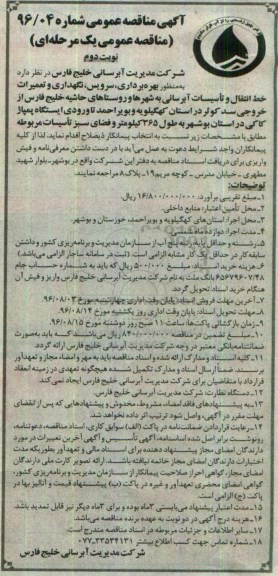 آگهی مناقصه عمومی شماره ۹۶/۰۴
(مناقصه عمومی یک مرحله‌ای)
نوبت دوم
شرکت مدیریت آبرسانی خلیج فارس در نظر دارد
به‌منظور بهره‌برداری، سرویس، نگهداری و تعمیرات
خط انتقال و تأسیسات آبرسانی به شهرها و روستاهای حاشیه خلیج فارس از
خروجی سد کوثر در استان کهگیلویه و بویراحمد تا ورودی ایستگاه پمپاژ
کاکی در استان بوشهر به طول ۳۶۵ کیلومتر و فضای سبز تأسیسات مربوطه
مطابق با مشخصات زیر نسبت به انتخاب پیمانکار ذیصلاح اقدام نماید. لذا از کلیه
پیمانکاران واجد شرایط دعوت به عمل می‌آید با در دست داشتن معرفی‌نامه و فیش
واریزی برای دریافت اسناد مناقصه به دفتر این شرکت واقع در بوشهر - بلوار شهید
مطهری - خیابان مدرس - کوچه مریم ۱۹ - پلاک ۸ مراجعه نمایند.
توضیحات:
۱ـ مبلغ تقریبی برآورد: ۱۶/۸۰۰/۰۰۰/۰۰۰ ریال.
۲ـ محل تأمین اعتبار: منابع داخلی.
۳ـ محل اجرا: استان‌های کهگیلویه و بویراحمد، خوزستان و بوشهر.
۴ـ مدت اجرا: دوازده ماه شمسی.
۵ـ رشته و حداقل پایه یا رتبه: پنج آب از سازمان مدیریت و برنامه‌ریزی کشور و داشتن
سابقه کار در حداقل یک کار مشابه الزامی است. (ثبت در سامانه ساجار الزامی می‌باشد)
۶ـ هزینه خرید اسناد: مبلغ ۵۰۰/۰۰۰ ریال که باید به شماره حساب جام
بانک ملت به نام شرکت مدیریت آبرسانی خلیج فارس واریز و فیش آن
هنگام خرید اسناد تحویل گردد.
۷ـ آخرین مهلت فروش اسناد: پایان وقت اداری چهارشنبه مورخ ۹۶/۰۸/۰۳
۸ـ مهلت تحویل اسناد: پایان وقت اداری روز یکشنبه مورخ ۹۶/۰۸/۱۴
۹ـ زمان بازگشایی پاکت‌ها: ساعت ۱۱ صبح روز دوشنبه مورخ ۹۶/۰۸/۱۵
۱۰ـ مبلغ تضمین در مناقصه: ۸۴۰/۰۰۰/۰۰۰ ریال می‌باشد که باید به‌صورت
ضمانتنامه بانکی معتبر در وجه شرکت مدیریت آبرسانی خلیج فارس ارائه گردد.
۱۱ـ کلیه اسناد و مدارک ارائه شده و اسناد مناقصه باید به مهر و امضاء مجاز و تعهدآور
برسند. ضمناً ارسال اسناد و مدارک تکمیل شده هیچگونه تعهدی در زمینه انعقاد
قرارداد با متقاضیان برای شرکت مدیریت آبرسانی خلیج فارس ایجاد نمی‌کند.
۱۲ـ دستگاه نظارت: شرکت مدیریت آبرسانی خلیج فارس.
۱۳ـ پیشنهادهای فاقد امضاء، مشروط، مخدوش و پیشنهادهایی که پس از انقضای
مهلت مقرر در آگهی، واصل شود ترتیب اثر داده نخواهد شد.
۱۴ـ رعایت قرار دادن ضمانتنامه در پاکت (الف) سوابق کاری، اسناد مناقصه، دعوتنامه،
رونوشت برابر اصل شده اساسنامه، آگهی تأسیس و آگهی آخرین تغییرات در مورد
دارندگان امضای مجاز پیشنهاد دهنده برای اسناد مالی و تعهدآور بطوریکه مدت
اختیارات دارندگان امضای مجاز خاتمه نیافته باشد. ارائه تصویر کارت ملی دارندگان
امضای مجاز، گواهی احراز صلاحیت پیمانکار از سازمان مدیریت و برنامه‌ریزی کشور،
گواهی امضای محضری تعهدآور و غیره در پاکت (ب) پیشنهاد قیمت و آنالیز بها در
پاکت (ج) الزامی است.
۱۵ـ مدت اعتبار پیشنهاد می‌بایستی ۳ ماه بوده و برای ۳ ماه دیگر نیز قابل تمدید باشد.
۱۶ـ هزینه درج آگهی در دو نوبت به عهده برنده مناقصه می‌باشد.
۱۷ـ سایر اطلاعات و جزئیات مربوطه در اسناد مناقصه مندرج است.
۱۸ـ شماره تماس جهت کسب اطلاع بیشتر: ۰۷۷-۳۳۵۳۴۱۳۱
شرکت مدیریت آبرسانی خلیج فارس